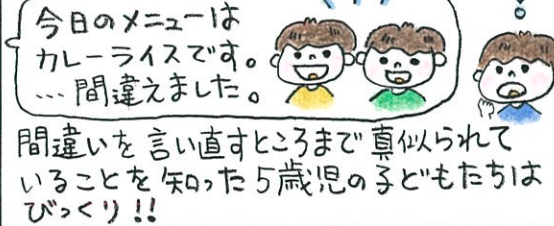 今日のメニューは
カレーライスです。
…間違えました。
間違いを言い直すところまで真似られて
いることを知った5歳児の子どもたちは
びっくり!!